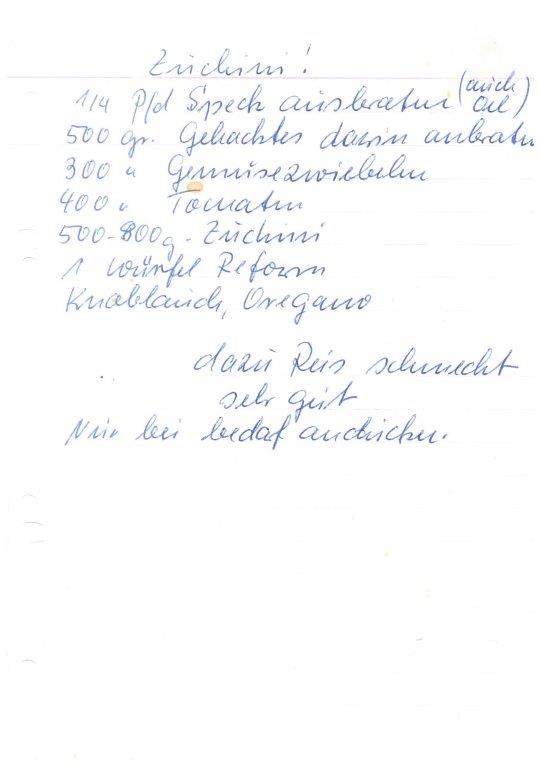 Zuchini!
1/4 Pfd Speck ausbraten (auch Oel)
500 gr. Gehacktes darin anbraten
300 " Gemüsezwiebeln
400 " Tomaten
500-800g. Zuchini
1 Würfel Reform
Knoblauch, Oregano
dazu Reis schmeckt
sehr gut
Nur bei bedaf andicken.